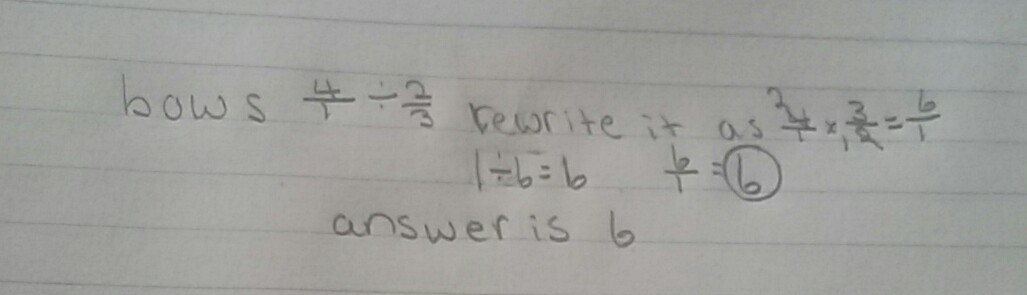 bows 4/1 ÷ 2/3 rewrite it as 2 4/1 × 3/2 1 = 6/1
1 ÷ 6 = 6 6/1 = 6
answer is 6